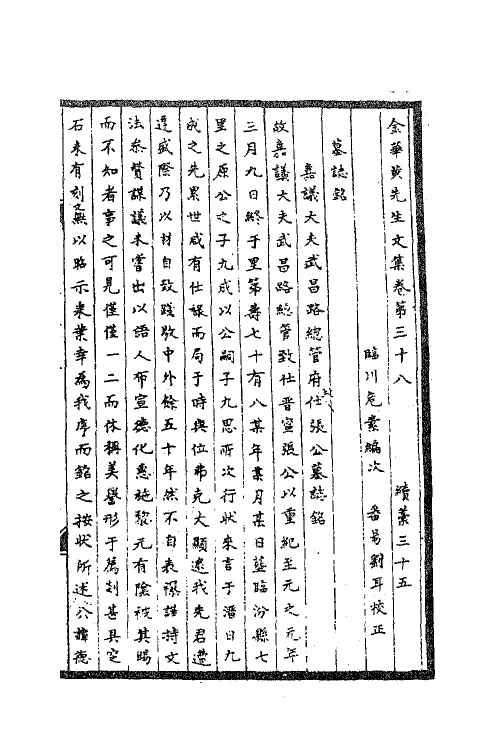 金華黃先生文集卷第三十八 續藁三十五
臨川危素編次 番昜劉耳校正
墓誌銘
嘉議大夫武昌路總管府仕張公墓誌銘
故嘉議大夫武昌路總管致仕晉寧張公以重紀至元之元年
三月九日終于里第壽七十有八某年某月某日葬臨汾縣七
里之原公之子九成以公嗣子九思所次行狀來言于溍曰九
成之先累世咸有仕祿而局于時與位弗克大顯逮我先君遭
逢盛際乃以材自致踐敭中外餘五十年然不自表襮謹持文
法參贊謀議未嘗出以語人布宣德化惠施黎元有陰被其賜
而不知者事之可見僅僅一二而休稱美譽形于薦刻甚具空
石未有刻文無以昭示來葉幸為我序而銘之按狀所述公諱德